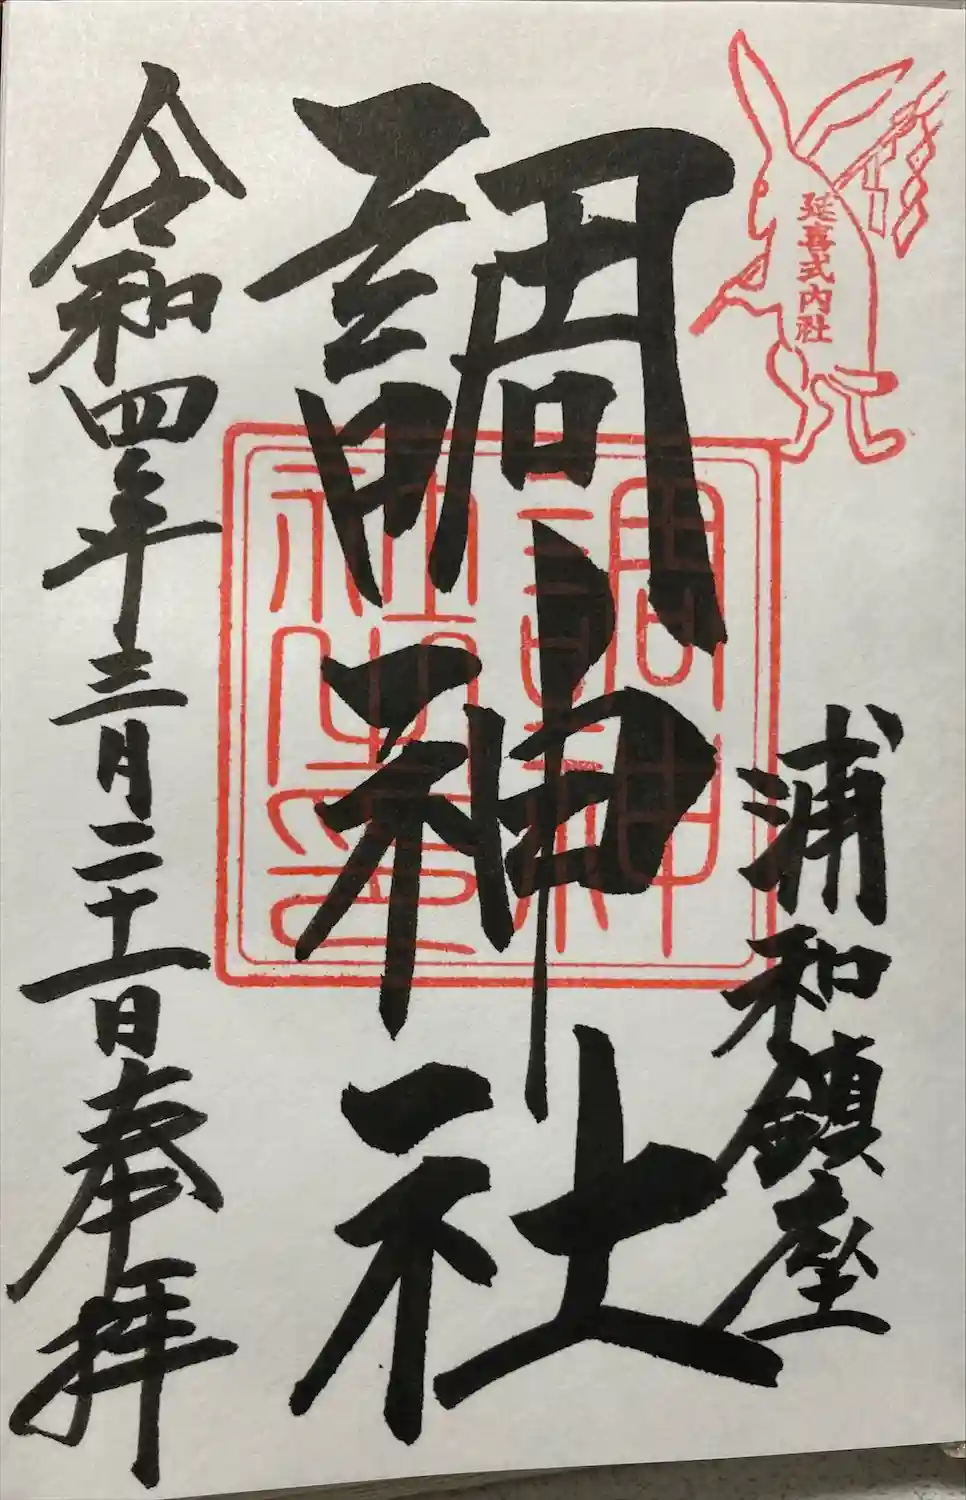 延喜式内社
浦和鎮座
調神社
調神
社之印
令和四年三月二十一日奉拝